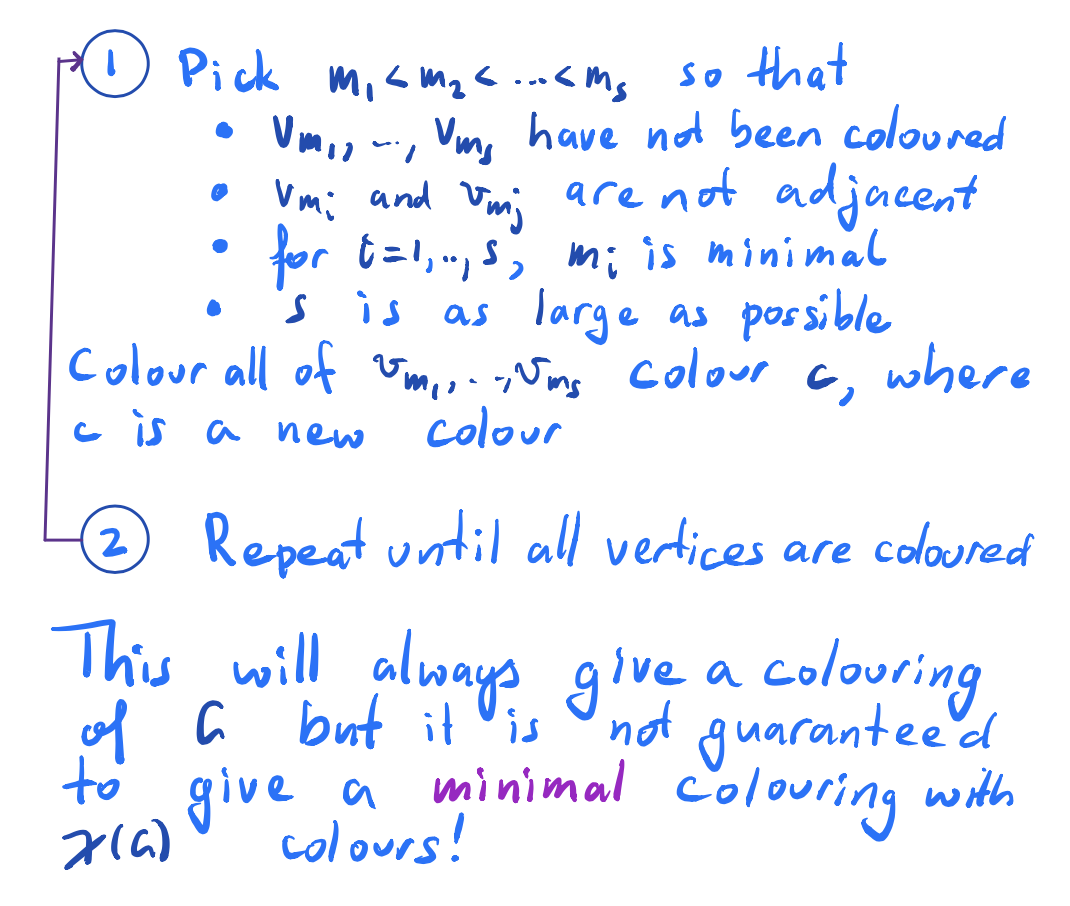 ① Pick m₁ < m₂ < ... < mₛ so that
• vₘ₁, ..., vₘₛ have not been coloured
• vₘᵢ and vₘⱼ are not adjacent
• for i=1,..,s, mᵢ is minimal
• s is as large as possible
Colour all of vₘ₁, ..., vₘₛ colour c, where
c is a new colour
② Repeat until all vertices are coloured
This will always give a colouring
of G but it is not guaranteed
to give a minimal colouring with
χ(G) colours!